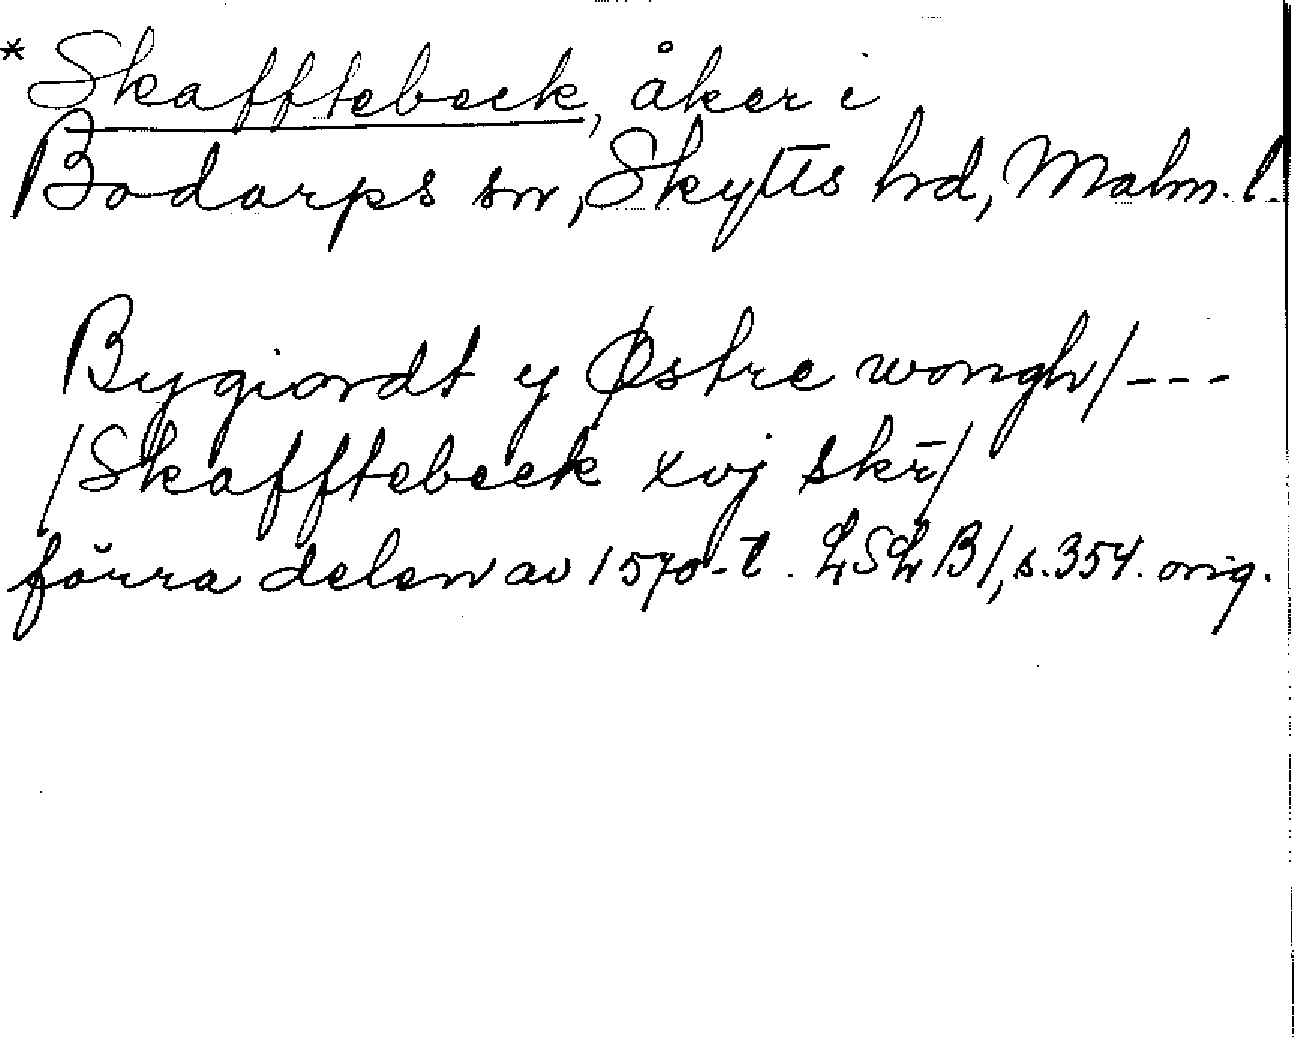 * Skafftebeck, åker i
Bodarps sn, Skytts hd, Malm. l.
Bygiordt y Østre wongh/ ---
/Skafftebeck xvj skr̄/
förra delen av 1570-t. LSLB1, s. 354. orig.